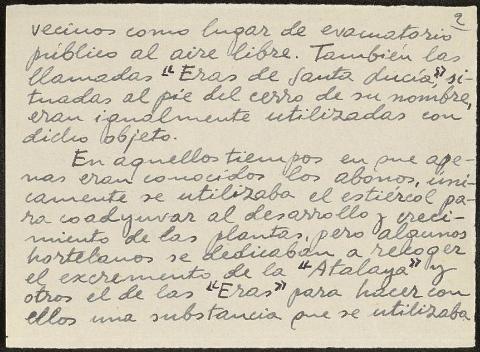 2
vecinos como lugar de evacuatorio
público al aire libre. También las
llamadas "Eras de Santa Lucía", si-
tuadas al pie del cerro de su nombre,
eran igualmente utilizadas con
dicho objeto.
En aquellos tiempos en que ape-
nas eran conocidos los abonos, úni-
camente se utilizaba el estiércol pa-
ra coadyuvar al desarrollo y creci-
miento de las plantas, pero algunos
hortelanos se dedicaban a recoger
el excremento de la "Atalaya" y
otros el de las "Eras" para hacer con
ellos una substancia que se utilizaba